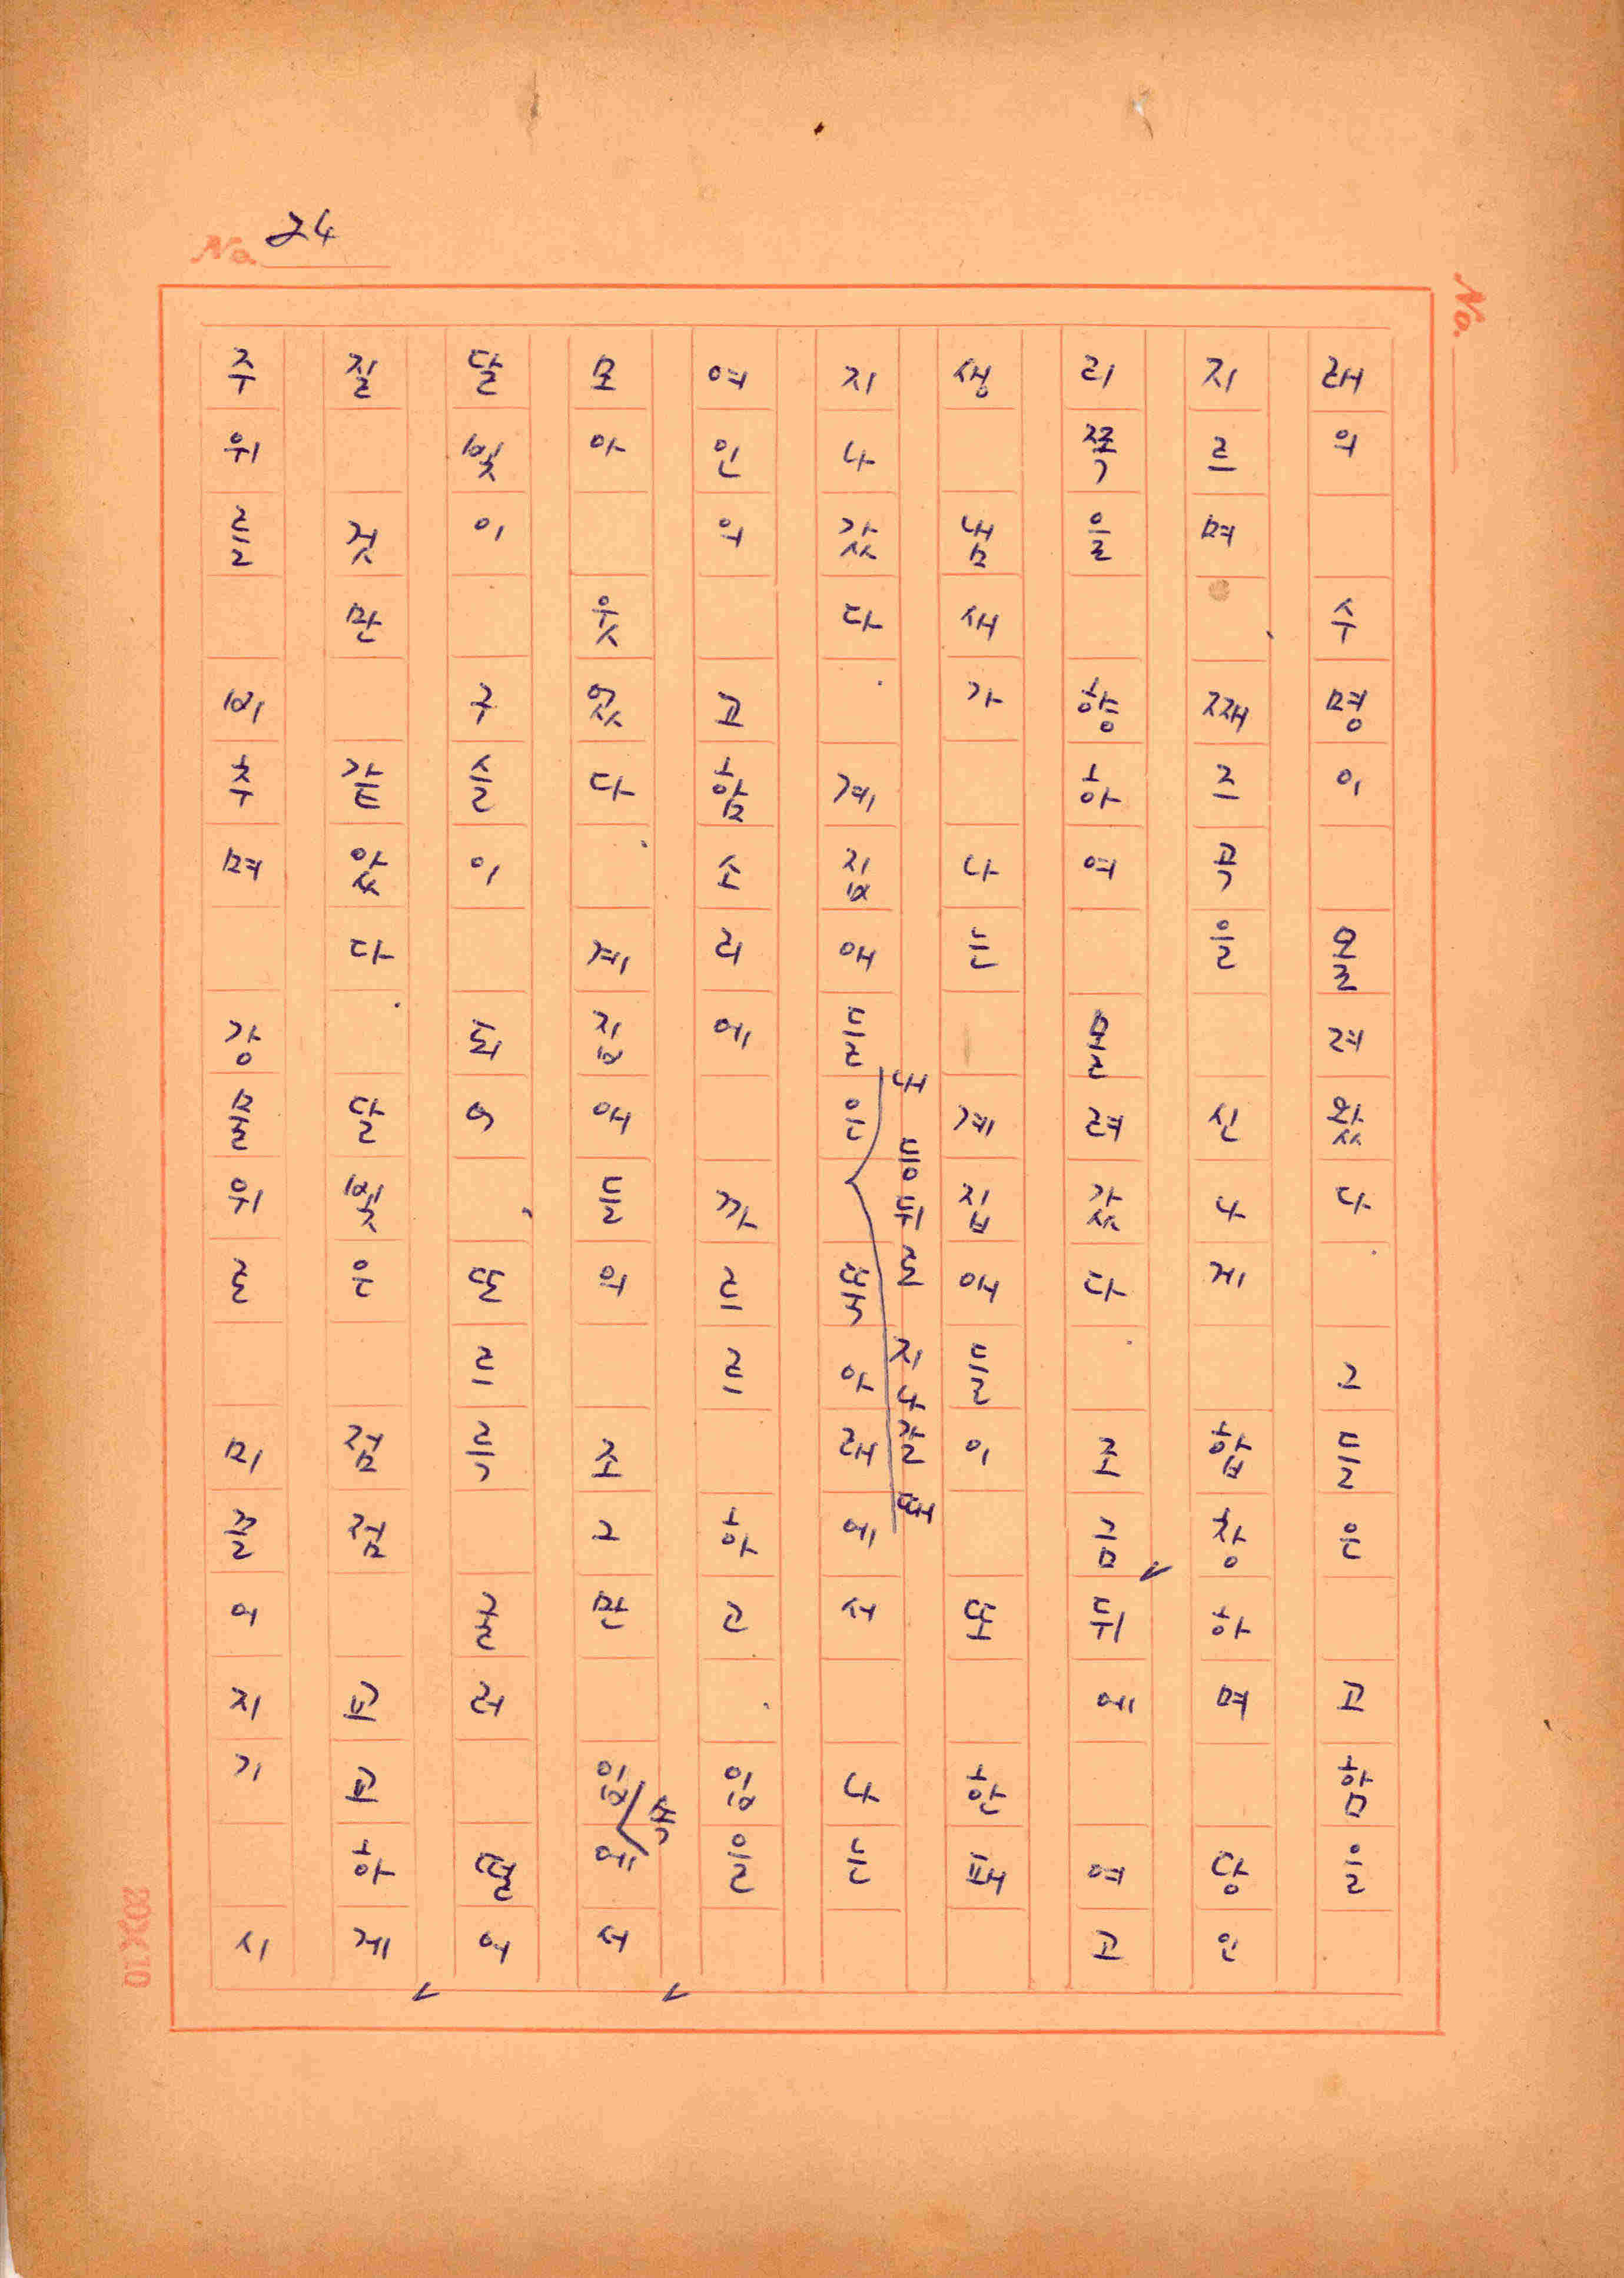 No. 24
No.
래의 수명이 몰려왔다. 그들은 고함을
지르며, 째즈곡을 신나게 합창하며 당인
리쪽을 향하여 몰려갔다. 조금뒤에 여고
생 냄새가 나는 계집애들이 또 한패
지나갔다. 계집애들은 뚝아래에서 나는
내 등뒤로 지나갈 때
여인의 고함소리에 까르르 하고, 입을
모아 웃었다. 계집애들의 조그만 입에서
속
달빛이 구슬이 되어, 또르륵 굴러 떨어
질 것만 같았다. 달빛은 점점 교교하게
주위를 비추며 강물위로 미끌어지기 시
20X10